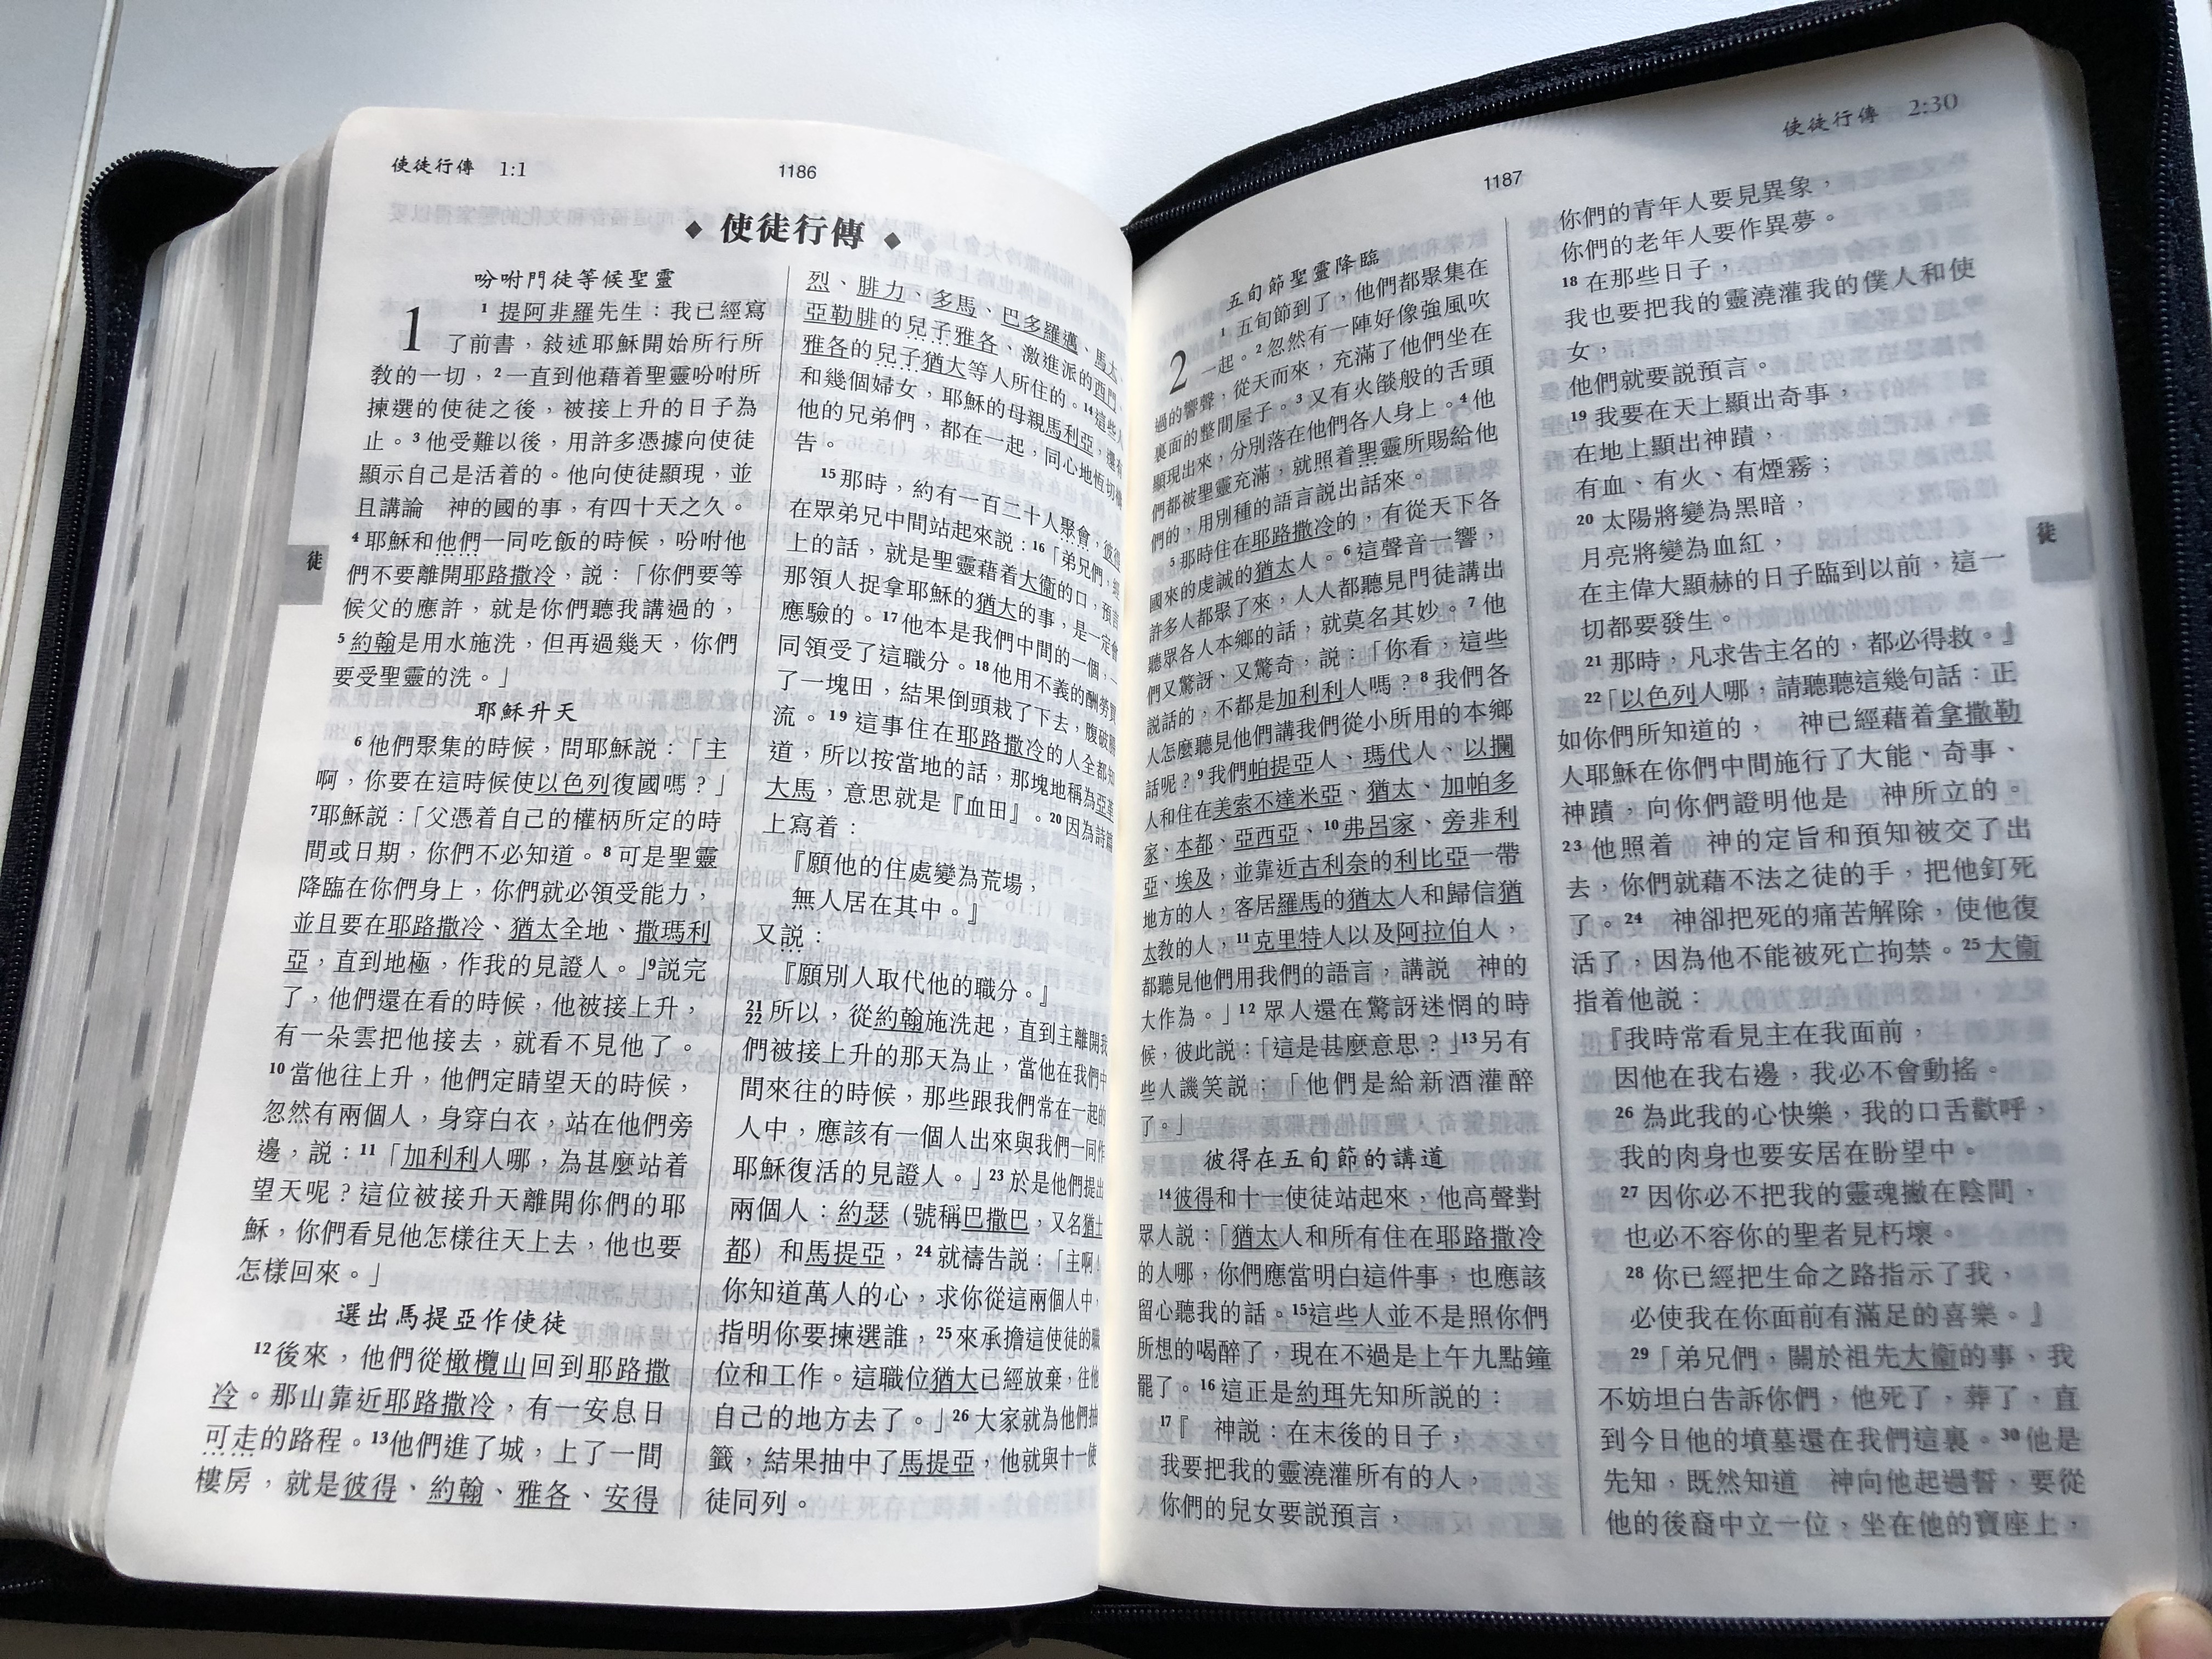 使徒行傳 1:1
1186
◆ 使徒行傳 ◆
吩咐門徒等候聖靈
1 ¹ 提阿非羅先生：我已經寫
了前書，敘述耶穌開始所行所
教的一切，² 一直到他藉着聖靈吩咐所
揀選的使徒之後，被接上升的日子為
止。³ 他受難以後，用許多憑據向使徒
顯示自己是活着的。他向使徒顯現，並
且講論　神的國的事，有四十天之久。
⁴ 耶穌和他們一同吃飯的時候，吩咐他
們不要離開耶路撒冷，説：「你們要等
候父的應許，就是你們聽我講過的，
⁵ 約翰是用水施洗，但再過幾天，你們
要受聖靈的洗。」
耶穌升天
⁶ 他們聚集的時候，問耶穌説：「主
啊，你要在這時候使以色列復國嗎？」
⁷耶穌説：「父憑着自己的權柄所定的時
間或日期，你們不必知道。⁸ 可是聖靈
降臨在你們身上，你們就必領受能力，
並且要在耶路撒冷、猶太全地、撒瑪利
亞，直到地極，作我的見證人。」⁹説完
了，他們還在看的時候，他被接上升，
有一朵雲把他接去，就看不見他了。
¹⁰ 當他往上升，他們定睛望天的時候，
忽然有兩個人，身穿白衣，站在他們旁
邊，説：¹¹「加利利人哪，為甚麼站着
望天呢？這位被接升天離開你們的耶
穌，你們看見他怎樣往天上去，他也要
怎樣回來。」
選出馬提亞作使徒
¹²後來，他們從橄欖山回到耶路撒
冷。那山靠近耶路撒冷，有一安息日
可走的路程。¹³他們進了城，上了一間
樓房，就是彼得、約翰、雅各、安得
烈、腓力、多馬、巴多羅邁、馬太、
亞勒腓的兒子雅各、激進派的西門、
雅各的兒子猶大等人所住的。¹⁴這些人
和幾個婦女，耶穌的母親馬利亞，還有
他的兄弟們，都在一起，同心地恆切禱
告。
¹⁵ 那時，約有一百二十人聚會，彼得
在眾弟兄中間站起來説：¹⁶「弟兄們，
上的話，就是聖靈藉着大衞的口，預言
那領人捉拿耶穌的猶大的事，是一定會
應驗的。¹⁷ 他本是我們中間的一個，
同領受了這職分。¹⁸ 他用不義的酬勞買
了一塊田，結果倒頭栽了下去，腹破
流。¹⁹ 這事住在耶路撒冷的人全都知
道，所以按當地的話，那塊地稱為亞革
大馬，意思就是『血田』。²⁰ 因為詩篇
上寫着：
『願他的住處變為荒場，
無人居在其中。』
又説：
『願別人取代他的職分。』
²¹ ²² 所以，從約翰施洗起，直到主離開我
們被接上升的那天為止，當他在我們中
間來往的時候，那些跟我們常在一起的
人中，應該有一個人出來與我們一同作
耶穌復活的見證人。」²³ 於是他們提出
兩個人：約瑟（號稱巴撒巴，又名猶士
都）和馬提亞，²⁴ 就禱告説：「主啊！
你知道萬人的心，求你從這兩個人中，
指明你要揀選誰，²⁵ 來承擔這使徒的職
位和工作。這職位猶大已經放棄，往他
自己的地方去了。」²⁶ 大家就為他們抽
籤，結果抽中了馬提亞，他就與十一使
徒同列。
徒
1187
使徒行傳 2:30
五旬節聖靈降臨
2 ¹ 五旬節到了，他們都聚集在
一起。² 忽然有一陣好像強風吹
過的響聲，從天而來，充滿了他們坐在
裏面的整間屋子。³ 又有火燄般的舌頭
顯現出來，分別落在他們各人身上。⁴ 他
們都被聖靈充滿，就照着聖靈所賜給他
們的，用別種的語言説出話來。
⁵ 那時住在耶路撒冷的，有從天下各
國來的虔誠的猶太人。⁶ 這聲音一響，
許多人都聚了來，人人都聽見門徒講出
聽眾各人本鄉的話，就莫名其妙。⁷ 他
們又驚訝、又驚奇，説：「你看，這些
説話的，不都是加利利人嗎？⁸ 我們各
人怎麼聽見他們講我們從小所用的本鄉
話呢？⁹ 我們帕提亞人、瑪代人、以攔
人和住在美索不達米亞、猶太、加帕多
家、本都、亞西亞、¹⁰ 弗呂家、旁非利
亞、埃及，並靠近古利奈的利比亞一帶
地方的人，客居羅馬的猶太人和歸信猶
太教的人，¹¹ 克里特人以及阿拉伯人，
都聽見他們用我們的語言，講説　神的
大作為。」¹² 眾人還在驚訝迷惘的時
候，彼此説：「這是甚麼意思？」¹³ 另有
些人譏笑説：「他們是給新酒灌醉
了。」
彼得在五旬節的講道
¹⁴ 彼得和十一使徒站起來，他高聲對
眾人説：「猶太人和所有住在耶路撒冷
的人哪，你們應當明白這件事，也應該
留心聽我的話。¹⁵這些人並不是照你們
所想的喝醉了，現在不過是上午九點鐘
罷了。¹⁶ 這正是約珥先知所説的：
¹⁷『　神説：在末後的日子，
我要把我的靈澆灌所有的人，
你們的兒女要説預言，
你們的青年人要見異象，
你們的老年人要作異夢。
¹⁸ 在那些日子，
我也要把我的靈澆灌我的僕人和使
女，
他們就要説預言。
¹⁹ 我要在天上顯出奇事，
在地上顯出神蹟，
有血、有火、有煙霧；
²⁰ 太陽將變為黑暗，
月亮將變為血紅，
在主偉大顯赫的日子臨到以前，這一
切都要發生。
²¹ 那時，凡求告主名的，都必得救。』
²²「以色列人哪，請聽聽這幾句話：正
如你們所知道的，　神已經藉着拿撒勒
人耶穌在你們中間施行了大能、奇事、
神蹟，向你們證明他是　神所立的。
²³ 他照着　神的定旨和預知被交了出
去，你們就藉不法之徒的手，把他釘死
了。²⁴　神卻把死的痛苦解除，使他復
活了，因為他不能被死亡拘禁。²⁵ 大衞
指着他説：
『我時常看見主在我面前，
因他在我右邊，我必不會動搖。
²⁶ 為此我的心快樂，我的口舌歡呼，
我的肉身也要安居在盼望中。
²⁷ 因你必不把我的靈魂撇在陰間，
也必不容你的聖者見朽壞。
²⁸ 你已經把生命之路指示了我，
必使我在你面前有滿足的喜樂。』
²⁹「弟兄們，關於祖先大衞的事，我
不妨坦白告訴你們，他死了，葬了，直
到今日他的墳墓還在我們這裏。³⁰ 他是
先知，既然知道　神向他起過誓，要從
他的後裔中立一位，坐在他的寶座上，
徒